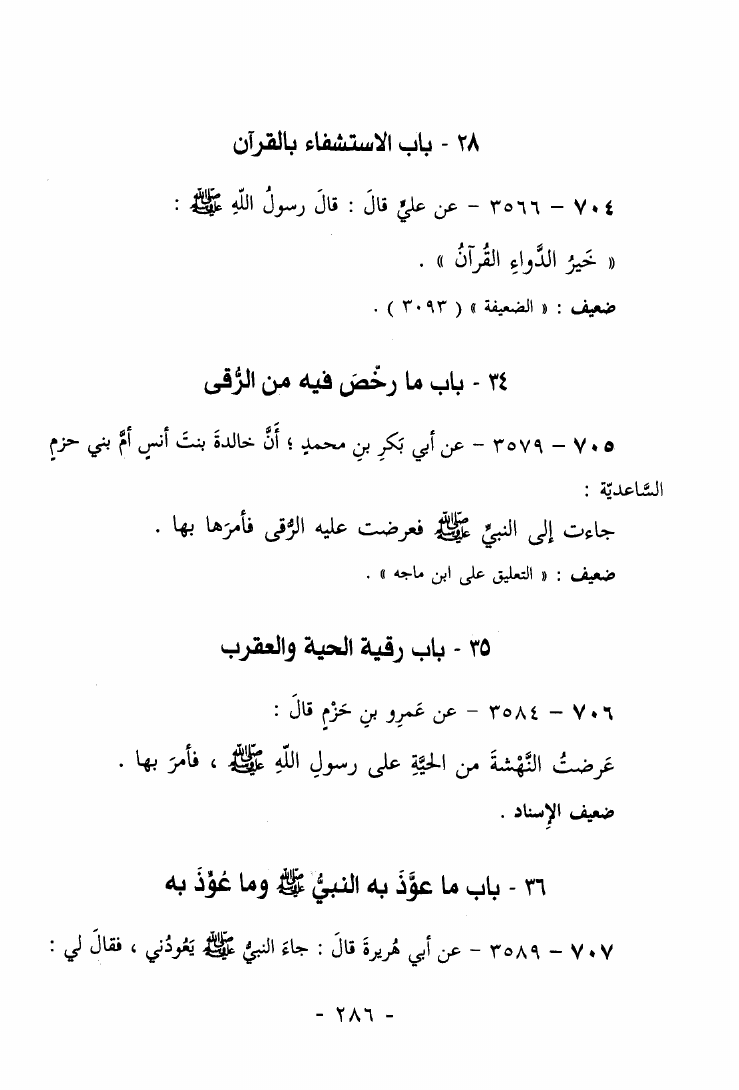 ٢٨ - باب الاستشفاء بالقرآن
٧٠٤ - ٣٥٦٦ - عن عليٍّ قالَ : قالَ رسولُ اللّهِ ﷺ :
« خَيرُ الدَّواءِ القُرآنُ » .
ضعيف : « الضعيفة » ( ٣٠٩٣ ) .
٣٤ - باب ما رخّصَ فيه من الرُّقى
٧٠٥ - ٣٥٧٩ - عن أبي بَكرِ بنِ محمدٍ ؛ أنَّ خالدةَ بنتَ أنسٍ أمَّ بني حزمٍ
السَّاعديّة :
جاءت إلى النبيِّ ﷺ فعرضت عليه الرُّقى فأمرَها بها .
ضعيف : « التعليق على ابن ماجه » .
٣٥ - باب رقية الحية والعقرب
٧٠٦ - ٣٥٨٤ - عن عَمرِو بنِ حَزْمٍ قالَ :
عَرضتُ النَّهْشةَ من الحيَّةِ على رسولِ اللّهِ ﷺ ، فأمرَ بها .
ضعيف الإسناد .
٣٦ - باب ما عوَّذَ به النبيُّ ﷺ وما عُوِّذَ به
٧٠٧ - ٣٥٨٩ - عن أبي هُريرةَ قالَ : جاءَ النبيُّ ﷺ يَعُودُني ، فقالَ لي :
- ٢٨٦ -